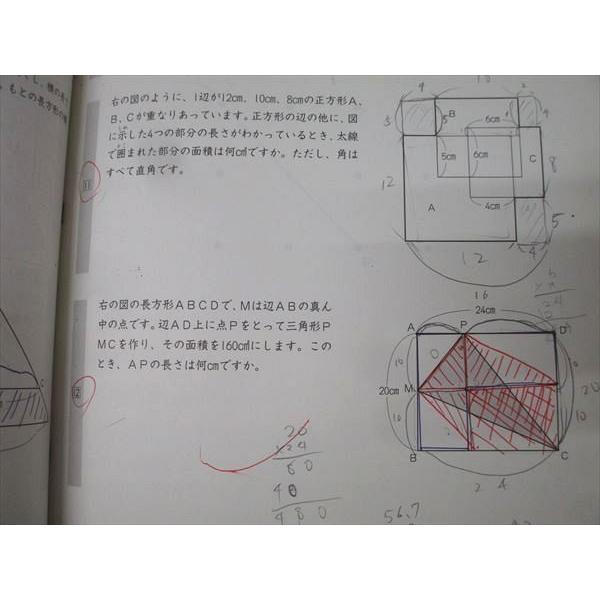 右の図のように、1辺が12cm、10cm、8cmの正方形A、
B、Cが重なりあっています。正方形の辺の他に、図
に示した4つの部分の長さがわかっているとき、太線
で囲まれた部分の面積は何cm²ですか。ただし、角は
すべて直角です。
11
4
2
B
6cm
5
5
4
5cm
6cm
C
8
12
A
4cm
5
12
4
右の図の長方形ABCDで、Mは辺ABの真ん
中の点です。辺AD上に点Pをとって三角形P
MCを作り、その面積を160cm²にします。この
とき、APの長さは何cmですか。
12
16
24cm
A
P
D
10
20cm
M
10
20
10
B
C
24
20
×24
80
40
480
56.7